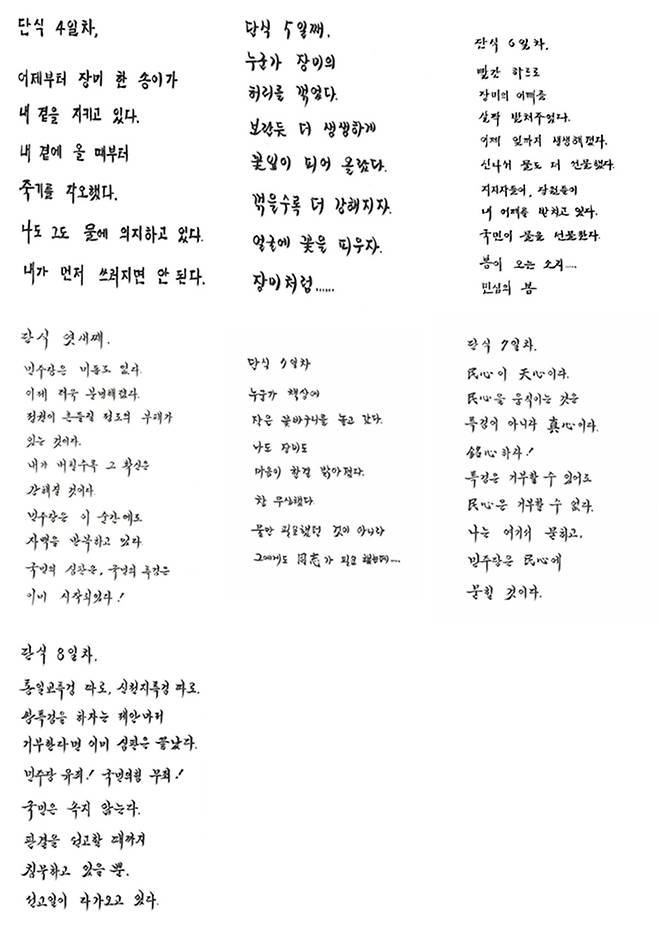 단식 4일차,
어제부터 장미 한 송이가
내 곁을 지키고 있다.
내 곁에 올 때부터
죽기를 각오했다.
나도 그도 물에 의지하고 있다.
내가 먼저 쓰러지면 안 된다.
단식 5일째.
누군가 장미의
허리를 꺾었다.
보란듯 더 생생하게
꽃잎이 피어 올랐다.
꺾을수록 더 강해지자.
얼굴에 꽃을 피우자.
장미처럼......
단식 6일차.
빨간 하트로
장미의 어깨를
살짝 받쳐주었다.
어제 잎까지 생생해졌다.
신나서 물도 더 선물했다.
지지자들이, 당원들이
내 어깨를 받치고 있다.
국민이 물을 선물한다.
봄이 오는 소리....
민심의 봄
단식 엿새째.
민주당은 미동도 없다.
이제 더욱 분명해졌다.
정권이 흔들릴 정도의 부패가
있는 것이다.
내가 버틸수록 그 확신은
강해질 것이다.
민주당은 이 순간에도
자백을 반복하고 있다.
국민의 심판은, 국민의 특검은
이미 시작되었다!
단식 7일차
누군가 책상에
작은 꽃바구니를 놓고 갔다.
나도 장미도
마음이 한결 밝아졌다.
참 무심했다.
물만 필요했던 것이 아니라
그에게도 同志가 필요했는데....
단식 7일차.
民心이 天心이다.
民心을 움직이는 것은
특검이 아니라 真心이다.
銘心하라!
특검은 거부할 수 있어도
民心은 거부할 수 없다.
나는 여기에 묻히고,
민주당은 民心에
묻힐 것이다.
단식 8일차.
통일교특검 따로, 신천지특검 따로.
쌍특검을 하자는 제안마저
거부한다면 이미 심판은 끝났다.
민주당 유죄! 국민의힘 무죄!
국민은 속지 않는다.
판결을 선고할 때까지
침묵하고 있을 뿐.
선고일이 다가오고 있다.